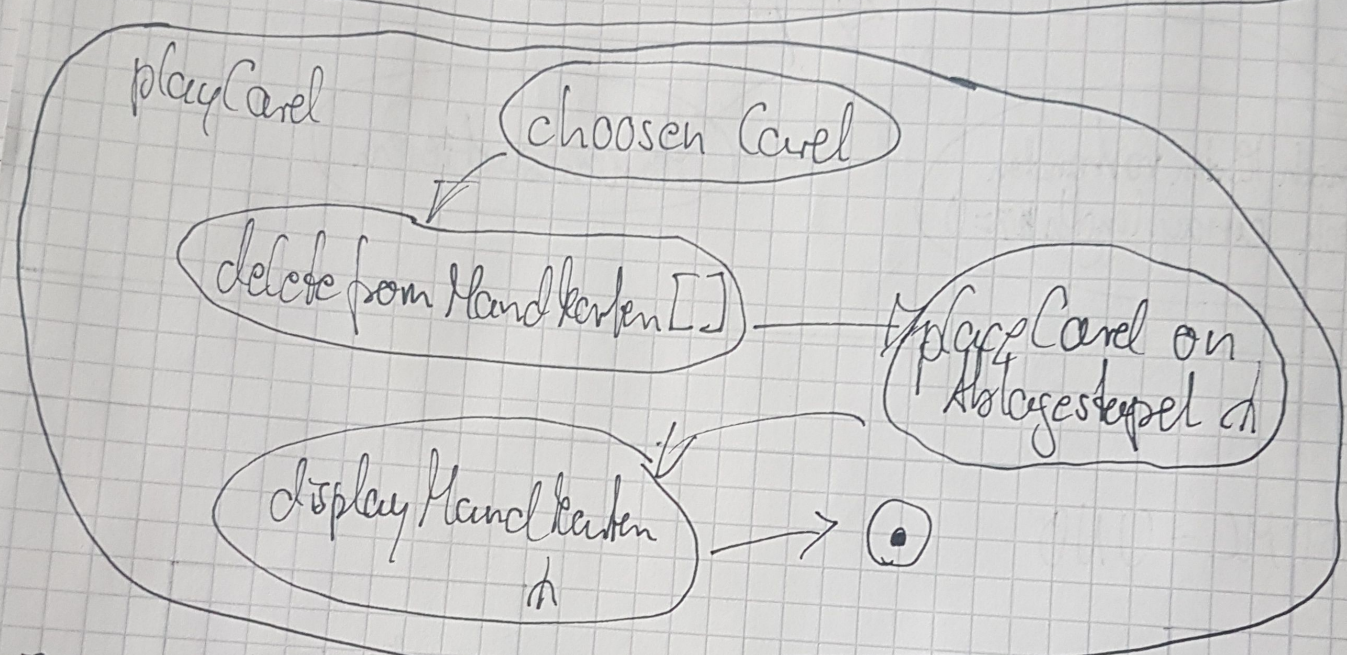 playCard
choosen Card
delete from Handkarten[]
placeCard on
Ablagestapel
displayHandkarten